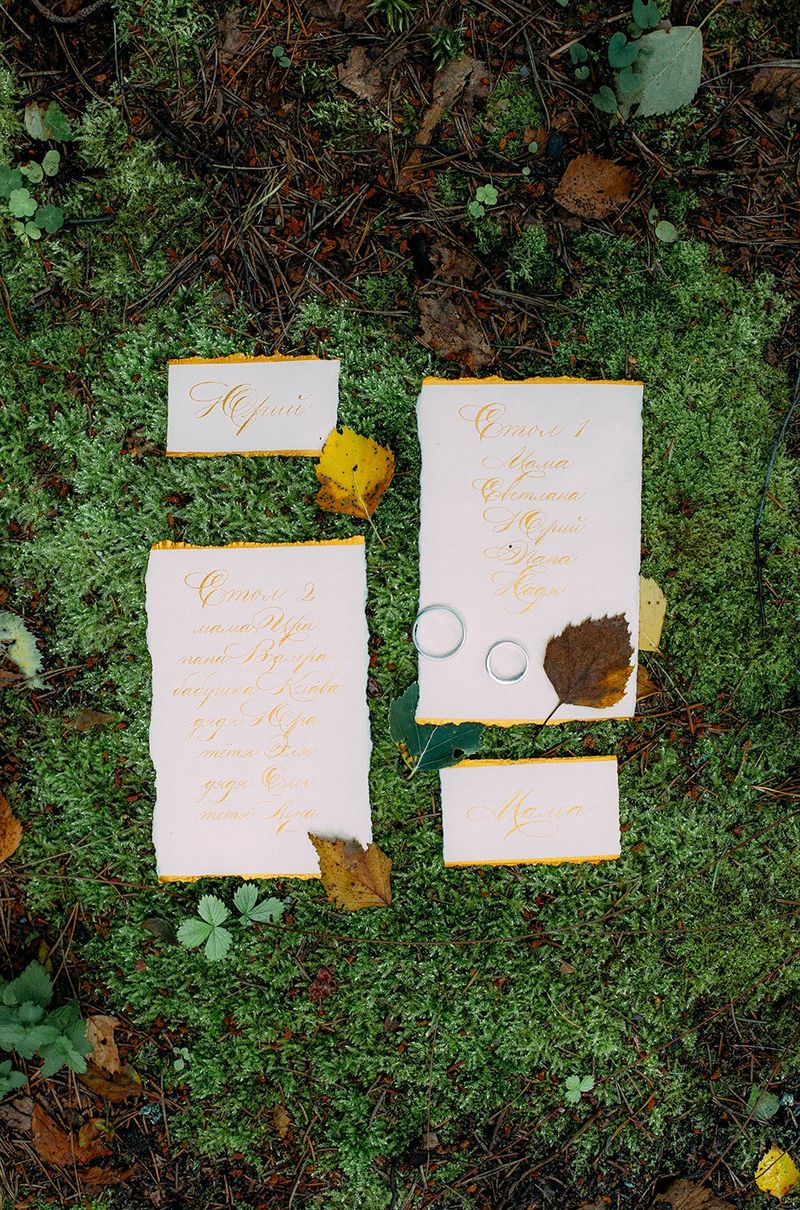 Юрий
Стол 1
Мама
Светлана
Юрий
Папа
Надя
Стол 2
мама Ира
папа Валера
бабушка Клава
дядя Юра
тётя Оля
дядя Олег
тётя Лена
Мама